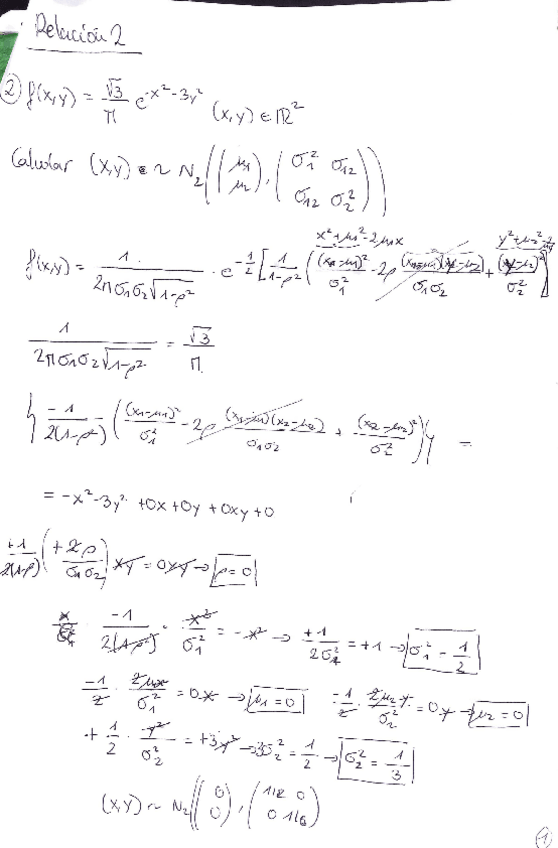 Relación 2
② f(x,y) = √3/π e^(-x²-3y²) (x,y) ∈ ℝ²
Calcular (x,y) ~ N₂((μ₁ μ₂), (σ₁² σ₁₂ σ₁₂ σ₂²))
x²+μ₁²-2μ₁x y²+μ₂²-2μ₂y
f(x,y) = 1/(2πσ₁σ₂√(1-ρ²)) · e^(-1/2 [1/(1-ρ²) ((x-μ₁)²/σ₁² - 2ρ (x-μ₁)(y-μ₂)/(σ₁σ₂) + (y-μ₂)²/σ₂²)])
1/(2πσ₁σ₂√(1-ρ²)) = √3/π
{-1/(2(1-ρ²)) ((x₁-μ₁)²/σ₁² - 2ρ (x₁-μ₁)(x₂-μ₂)/(σ₁σ₂) + (x₂-μ₂)²/σ₂²)} =
= -x²-3y² +0x +0y +0xy +0
+1/(2(1-ρ)) (+2ρ/(σ₁σ₂)) xy = 0xy → ρ=0
-1/(2(1-ρ)) · x²/σ₁² = -x² → +1/(2σ₁²) = +1 → σ₁² = 1/2
-1/2 · 2μ₁x/σ₁² = 0x → μ₁=0 -1/2 · 2μ₂y/σ₂² = 0y → μ₂=0
+ 1/2 · y²/σ₂² = +3y² → 3σ₂² = 1/2 → σ₂² = 1/3
(x,y) ~ N₂((0 0), (1/2 0 0 1/6))
①